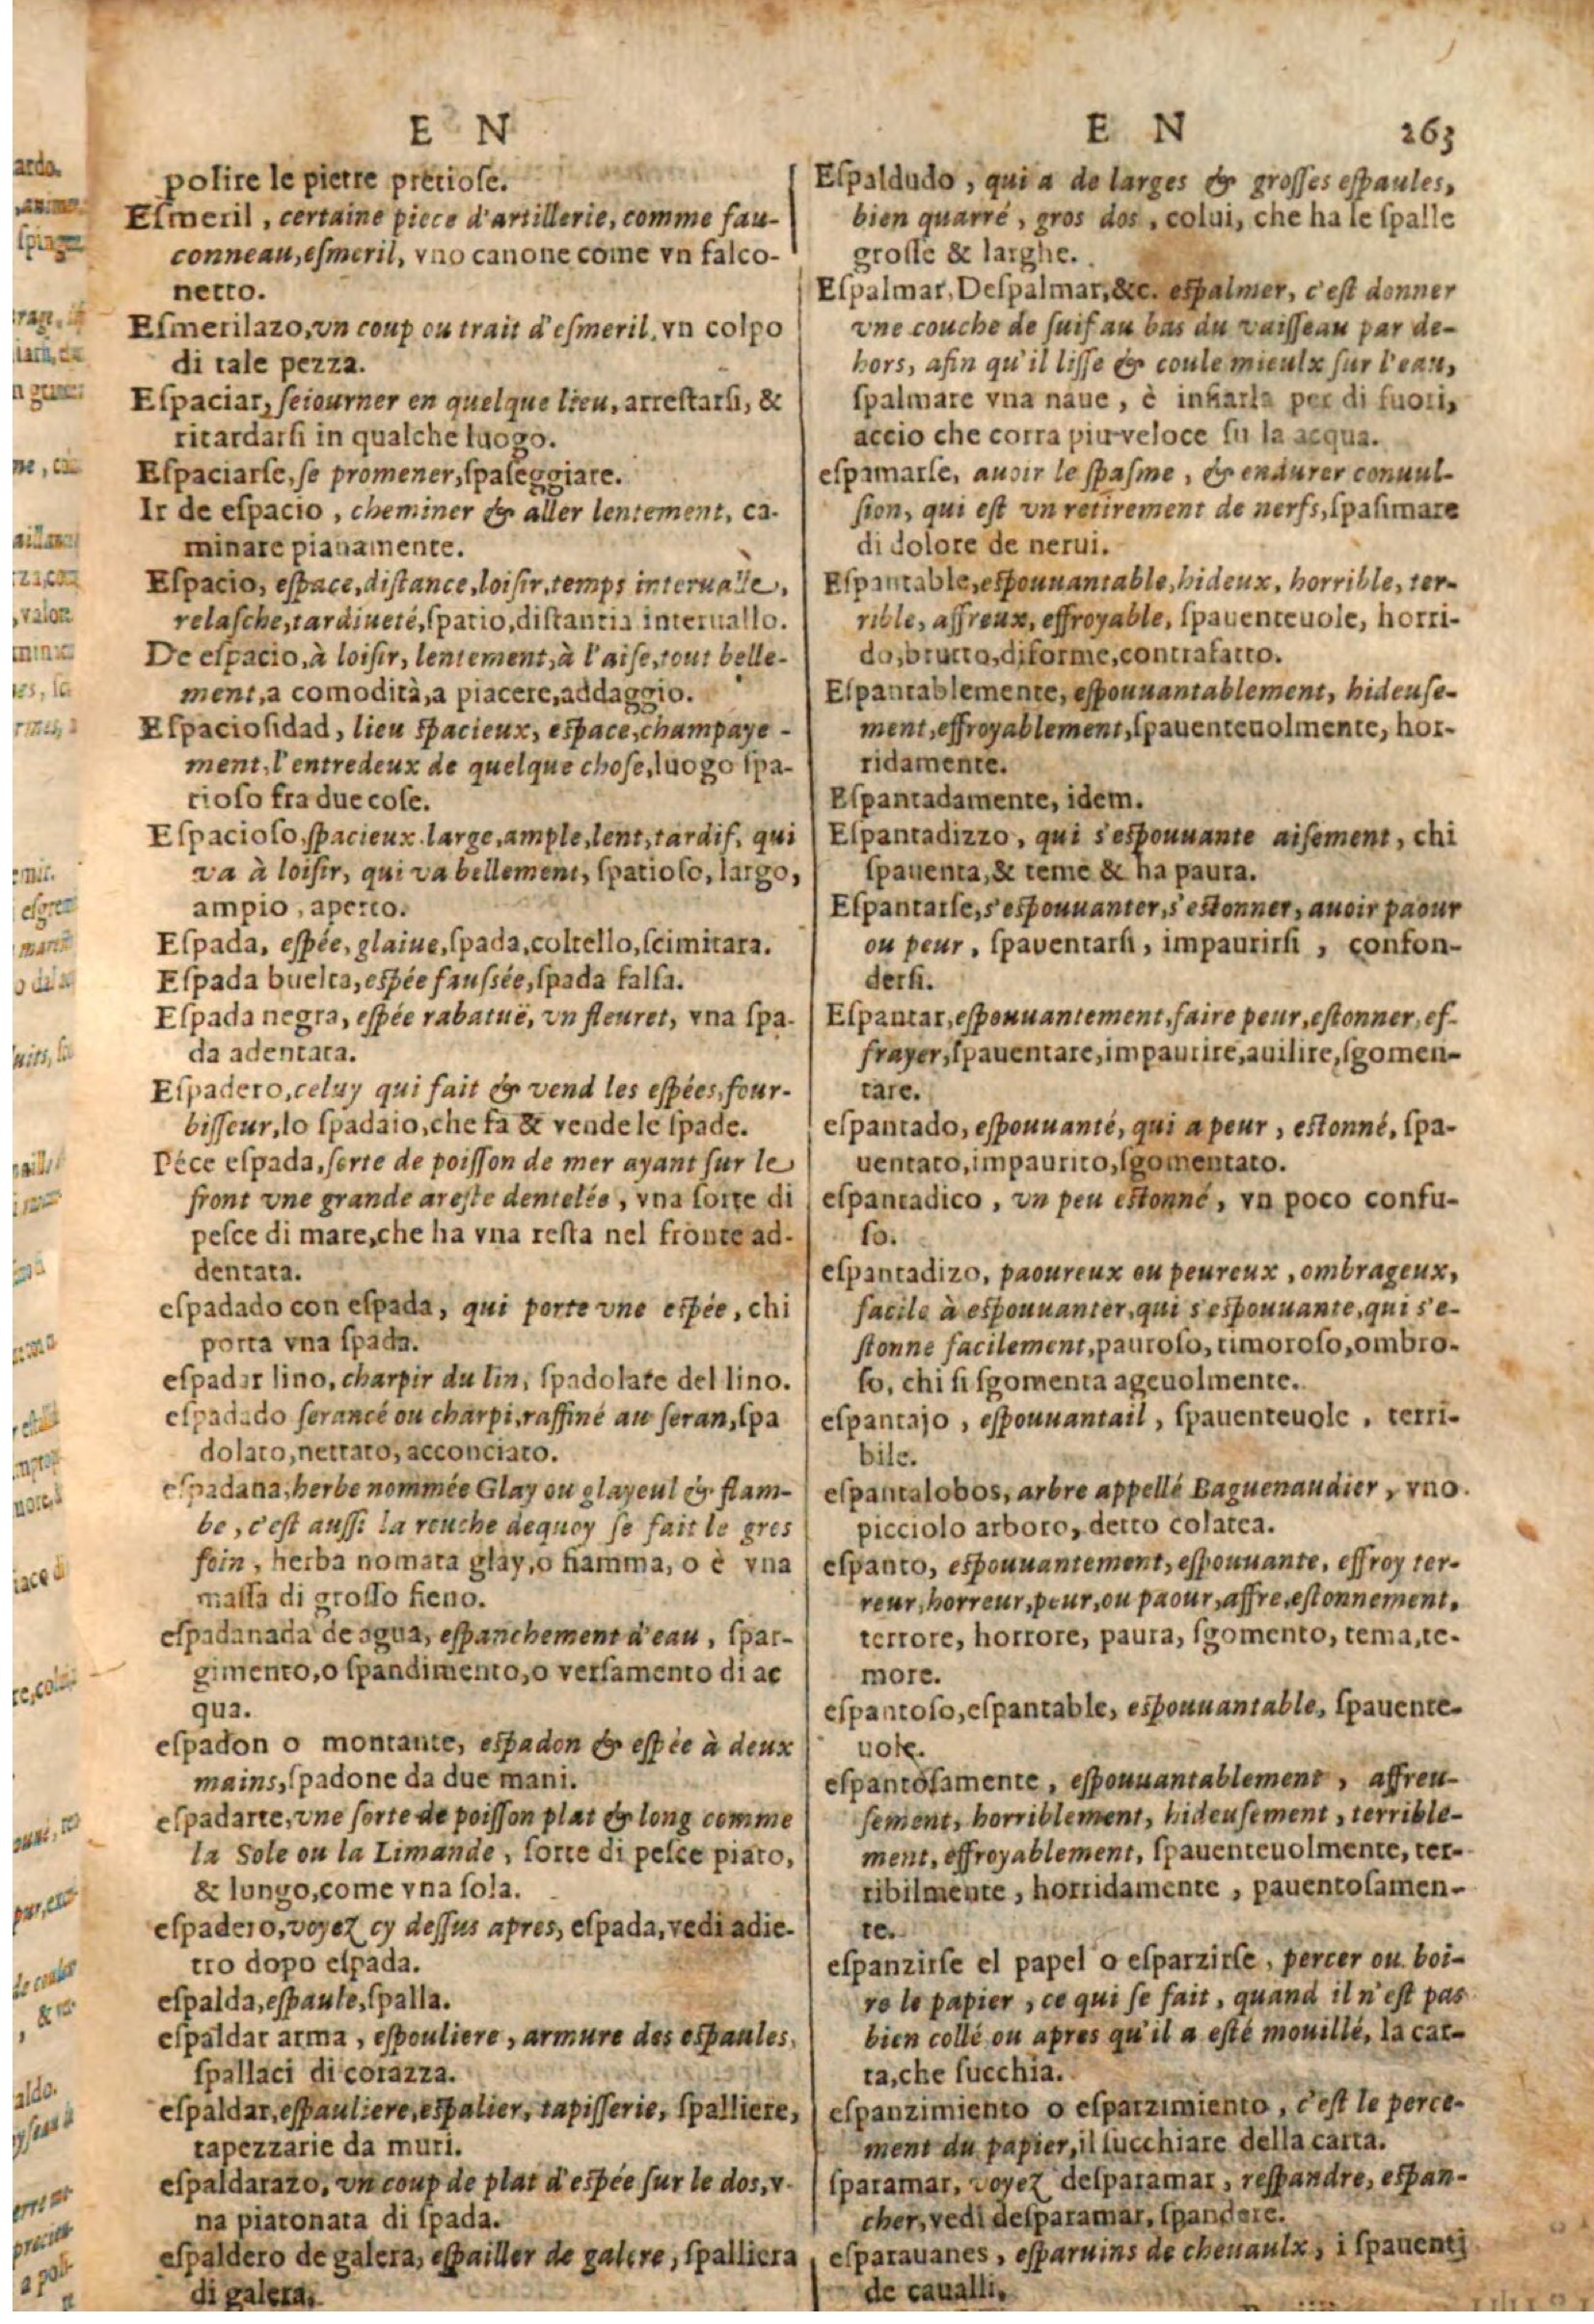 E N
polire le pietre pretiose.
Eſmeril, certaine piece d'artillerie, comme fau-
conneau, eſmeril, vno canone come vn falco-
netto.
Eſmerilazo, vn coup ou trait d'eſmeril, vn colpo
di tale pezza.
Eſpaciar, ſeiourner en quelque lieu, arreſtarſi, &
ritardarſi in qualche luogo.
Eſpaciarſe, ſe promener, ſpaſeggiare.
Ir de eſpacio, cheminer & aller lentement, ca-
minare pianamente.
Eſpacio, eſpace, diſtance, loiſir, temps interualle,
relaſche, tardiueté, ſpatio, diſtantia interuallo.
De eſpacio, à loiſir, lentement, à l'aiſe, tout belle-
ment, a comodità, a piacere, addaggio.
Eſpacioſidad, lieu ſpacieux, eſpace, champaye-
ment, l'entredeux de quelque choſe, luogo ſpa-
tioſo fra due coſe.
Eſpacioſo, ſpacieux. large, ample, lent, tardif, qui
va à loiſir, qui va bellement, ſpatioſo, largo,
ampio, aperto.
Eſpada, eſpée, glaiue, ſpada, coltello, ſcimitara.
Eſpada buelta, eſpée fauſsée, ſpada falſa.
Eſpada negra, eſpée rabatuë, vn fleuret, vna ſpa-
da adentata.
Eſpadero, celuy qui fait & vend les eſpées, four-
biſſeur, lo ſpadaio, che fa & vende le ſpade.
Péce eſpada, ſorte de poiſſon de mer ayant ſur le
front vne grande areſte dentelée, vna ſorte di
peſce di mare, che ha vna reſta nel fronte ad-
dentata.
eſpadado con eſpada, qui porte vne eſpée, chi
porta vna ſpada.
eſpadar lino, charpir du lin, ſpadolate del lino.
eſpadado ſerancé ou charpi, raffiné au ſeran, ſpa
dolato, nettato, acconciato.
eſpadana, herbe nommée Glay ou glayeul & flam-
be, c'eſt auſſi la reuche dequoy ſe fait le gros
foin, herba nomata glay, o fiamma, o è vna
maſſa di groſſo fieno.
eſpadanada de agua, eſpanchement d'eau, ſpar-
gimento, o ſpandimento, o verſamento di ac
qua.
eſpadon o montante, eſpadon & eſpée à deux
mains, ſpadone da due mani.
eſpadarte, vne ſorte de poiſſon plat & long comme
la Sole ou la Limande, ſorte di peſce piato,
& lungo, come vna ſola.
eſpadero, voyez cy deſſus apres, eſpada, vedi adie-
tro dopo eſpada.
eſpalda, eſpaule, ſpalla.
eſpaldar arma, eſpouliere, armure des eſpaules,
ſpallaci di corazza.
eſpaldar, eſpauliere, eſpalier, tapiſſerie, ſpalliere,
tapezzarie da muri.
eſpaldarazo, vn coup de plat d'eſpée ſur le dos, v-
na piatonata di ſpada.
eſpaldero de galera, eſpailler de galere, ſpalliera
di galera.
E N 263
Eſpaldudo, qui a de larges & groſſes eſpaules,
bien quarré, gros dos, colui, che ha le ſpalle
groſſe & larghe.
Eſpalmar, Deſpalmar, &c. eſpalmer, c'eſt donner
vne couche de ſuif au bas du vaiſſeau par de-
hors, afin qu'il liſſe & coule mieulx ſur l'eau,
ſpalmare vna naue, è per di fuori,
accio che corra piu veloce ſu la acqua.
eſpamarſe, auoir le ſpaſme, & endurer conuul-
ſion, qui eſt vn retirement de nerfs, ſpaſimare
di dolore de nerui.
Eſpantable, eſpouuantable, hideux, horrible, ter-
rible, affreux, effroyable, ſpauenteuole, horri-
do, brutto, diforme, contrafatto.
Eſpantablemente, eſpouuantablement, hideuſe-
ment, effroyablement, ſpauenteuolmente, hor-
ridamente.
Eſpantadamente, idem.
Eſpantadizzo, qui s'eſpouuante aiſement, chi
ſpauenta, & teme & ha paura.
Eſpantarſe, s'eſpouuanter, s'eſtonner, auoir paour
ou peur, ſpaventarſi, impaurirſi, confon-
derſi.
Eſpantar, eſpouuantement, faire peur, eſtonner, ef-
frayer, ſpauentare, impaurire, auilire, ſgomen-
tare.
eſpantado, eſpouuanté, qui a peur, eſtonné, ſpa-
uentato, impaurito, ſgomentato.
eſpantadico, vn peu eſtonné, vn poco confu-
ſo.
eſpantadizo, paoureux ou peureux, ombrageux,
facile à eſpouuanter, qui s'eſpouuante, qui s'e-
ſtonne facilement, pauroſo, timoroſo, ombro-
ſo, chi ſi ſgomenta ageuolmente.
eſpantajo, eſpouuantail, ſpauenteuole, terri-
bile.
eſpantalobos, arbre appellé Baguenaudier, vno
picciolo arboro, detto colatea.
eſpanto, eſpouuantement, eſpouuante, effroy ter-
reur, horreur, peur, ou paour, affre, eſtonnement,
terrore, horrore, paura, ſgomento, tema, te-
more.
eſpantoſo, eſpantable, eſpouuantable, ſpauente-
uole.
eſpantoſamente, eſpouuantablement, affreu-
ſement, horriblement, hideuſement, terrible-
ment, effroyablement, ſpauenteuolmente, ter-
ribilmente, horridamente, pauentoſamen-
te.
eſpanzirſe el papel o eſparzirſe, percer ou boi-
re le papier, ce qui ſe fait, quand il n'eſt pas
bien collé ou apres qu'il a eſté mouillé, la car-
ta, che ſucchia.
eſpanzimiento o eſparzimiento, c'eſt le perce-
ment du papier, il ſucchiare della carta.
ſparamar, voyez deſparamar, reſpandre, eſpan-
cher, vedi deſparamar, ſpandere.
eſparauanes, eſparuins de cheuaulx, i ſpauentj
de caualli.